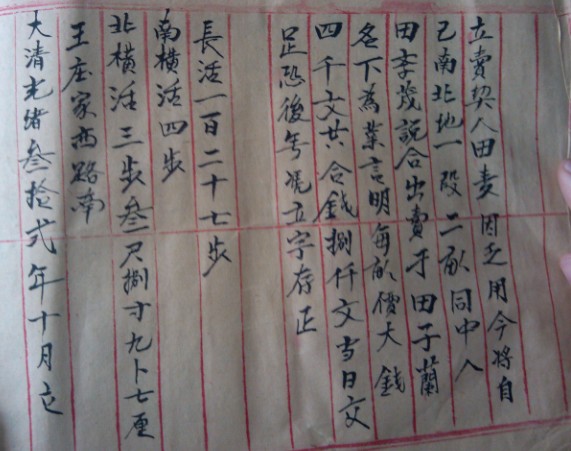 立賣契人田麦因乏用今將自
己南北地一段二畝同中人
田李茂説合出賣于田子蘭
名下為業言明每畝價大錢
四千文共合錢捌仟文当日交
足恐後無凭立字存正
長活一百二十七步
南横活四步
北横活三步叁尺捌寸九卜七厘
王庄家西路南
大清光绪叁拾弍年十月立